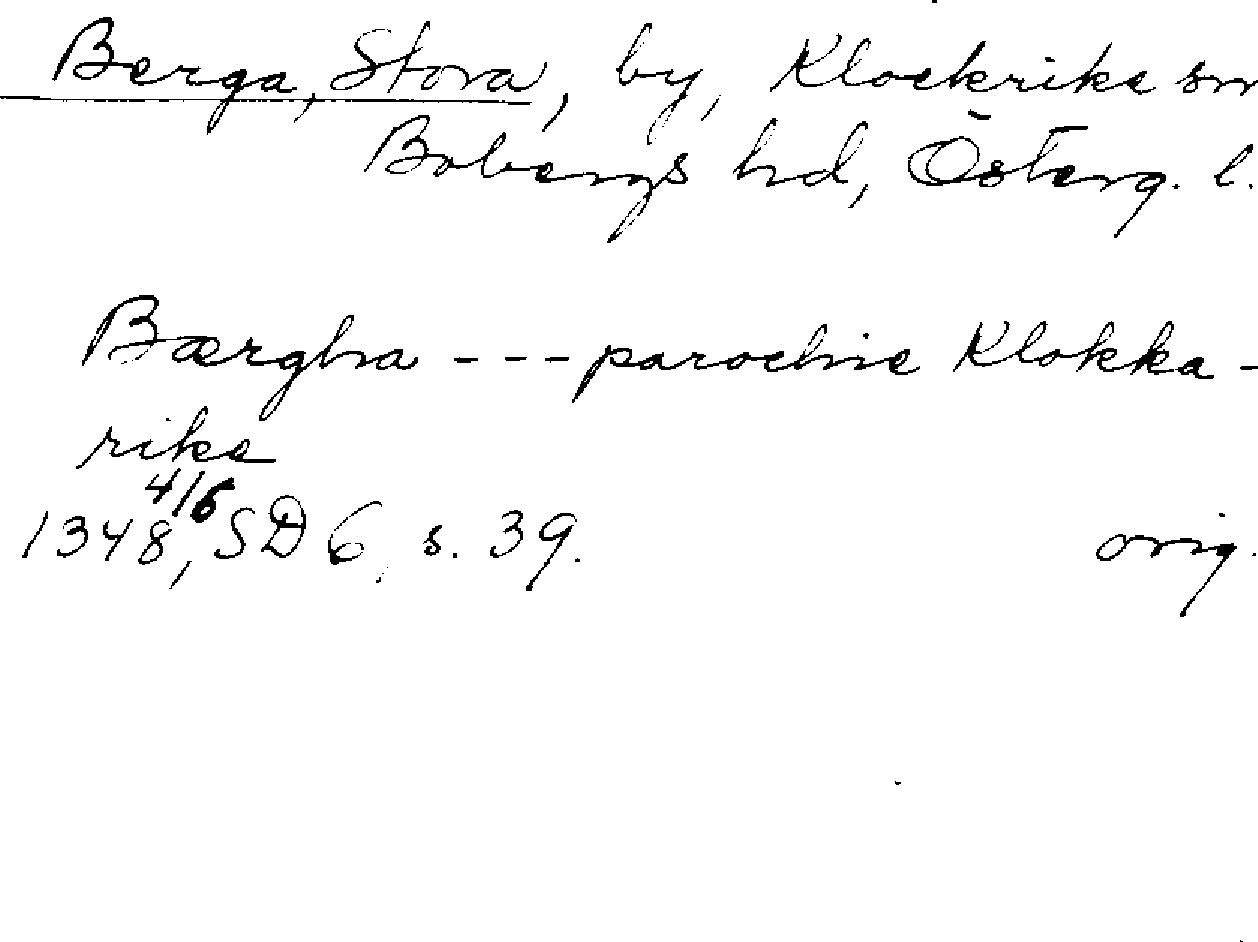 Berga, Stora, by, Klockrike sn
Bobergs hd, Österg. l.
Bærgha --- parochie Klokka-
rike
4/6
1348, SD 6, s. 39. orig.